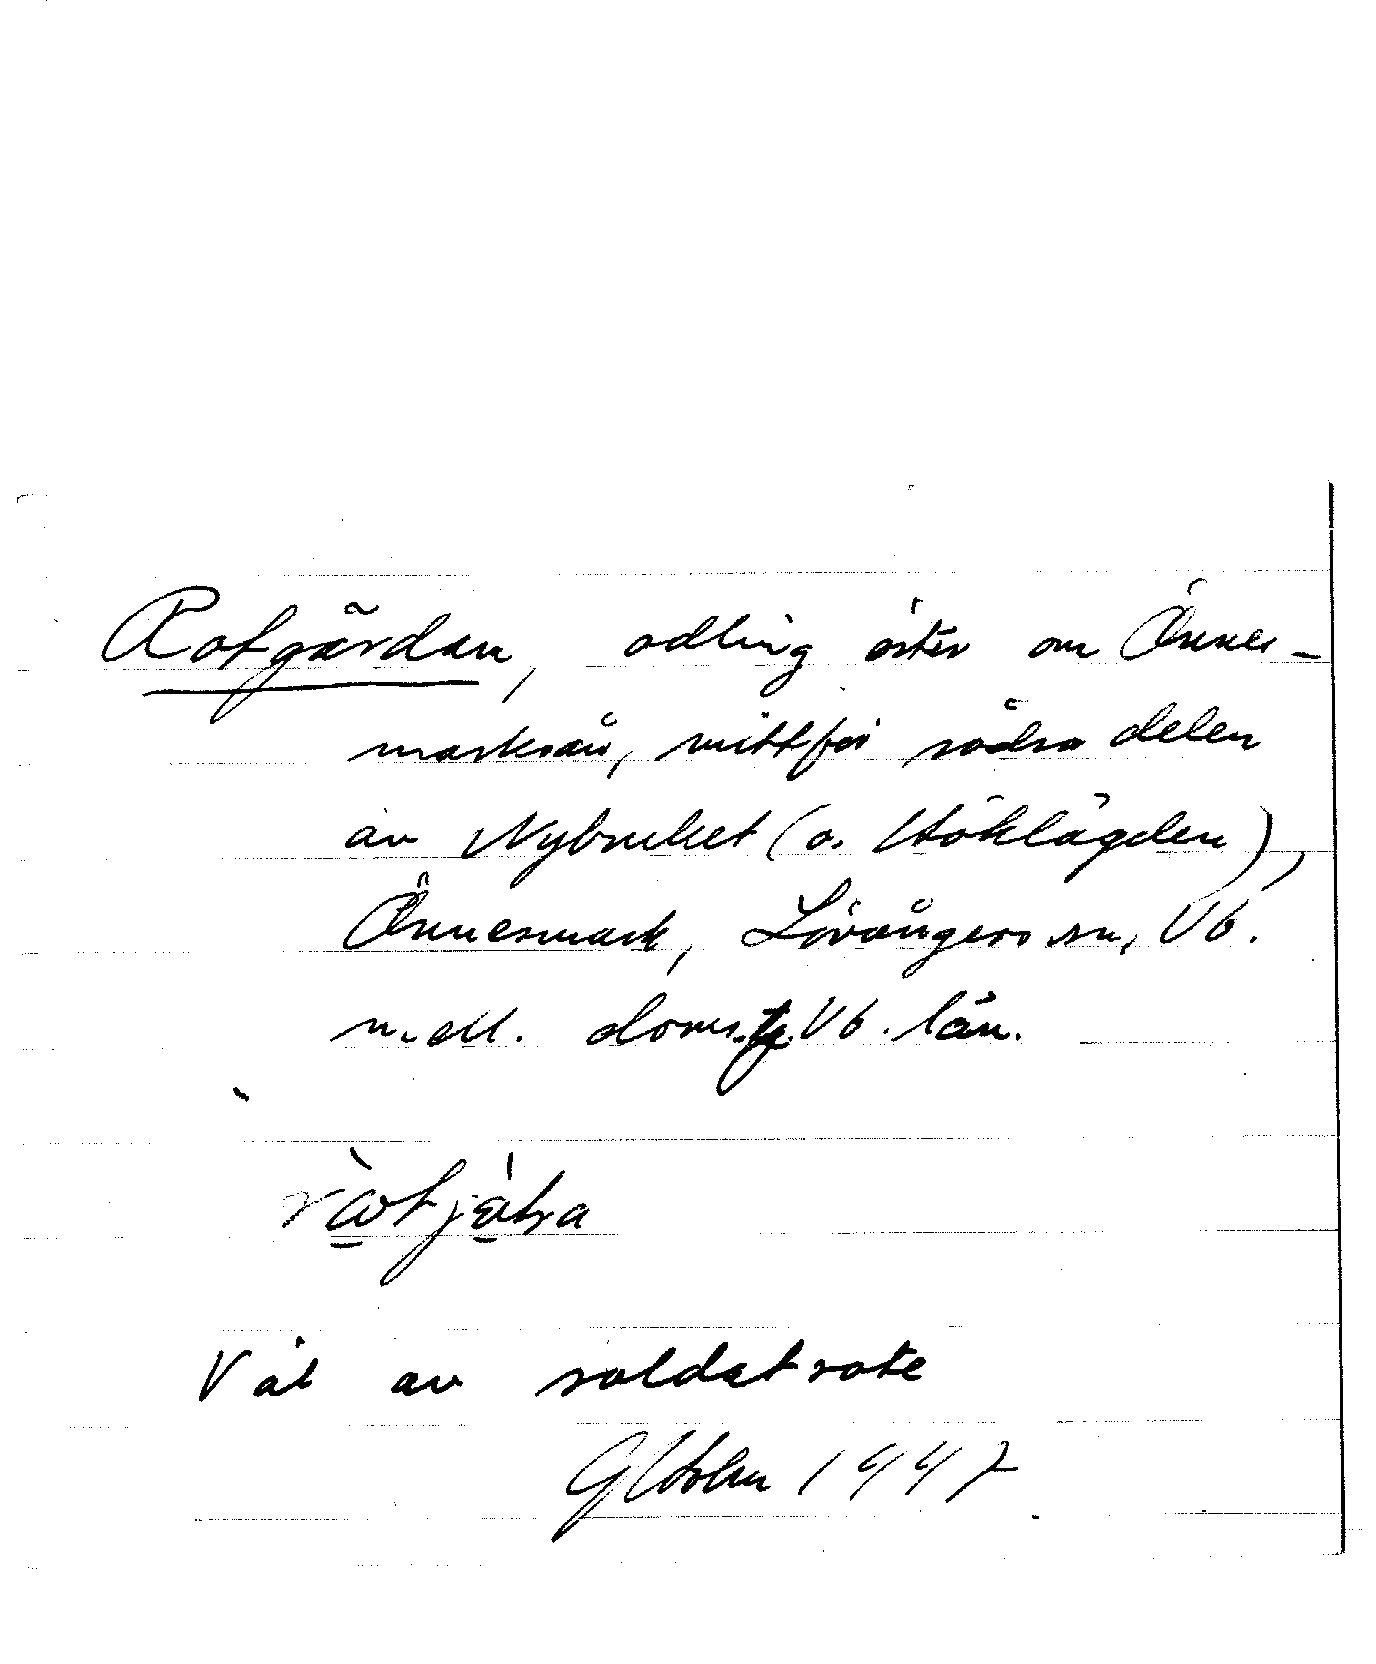 Rotgärdan, odling öster om Önnes-
marksån, mittför södra delen
av Nybruket (o. Höklägden),
Önnesmark, Lövångers sn, Vb.
n. dll. doms. Vb. län.
Väl av soldatrote
G Holm 1947